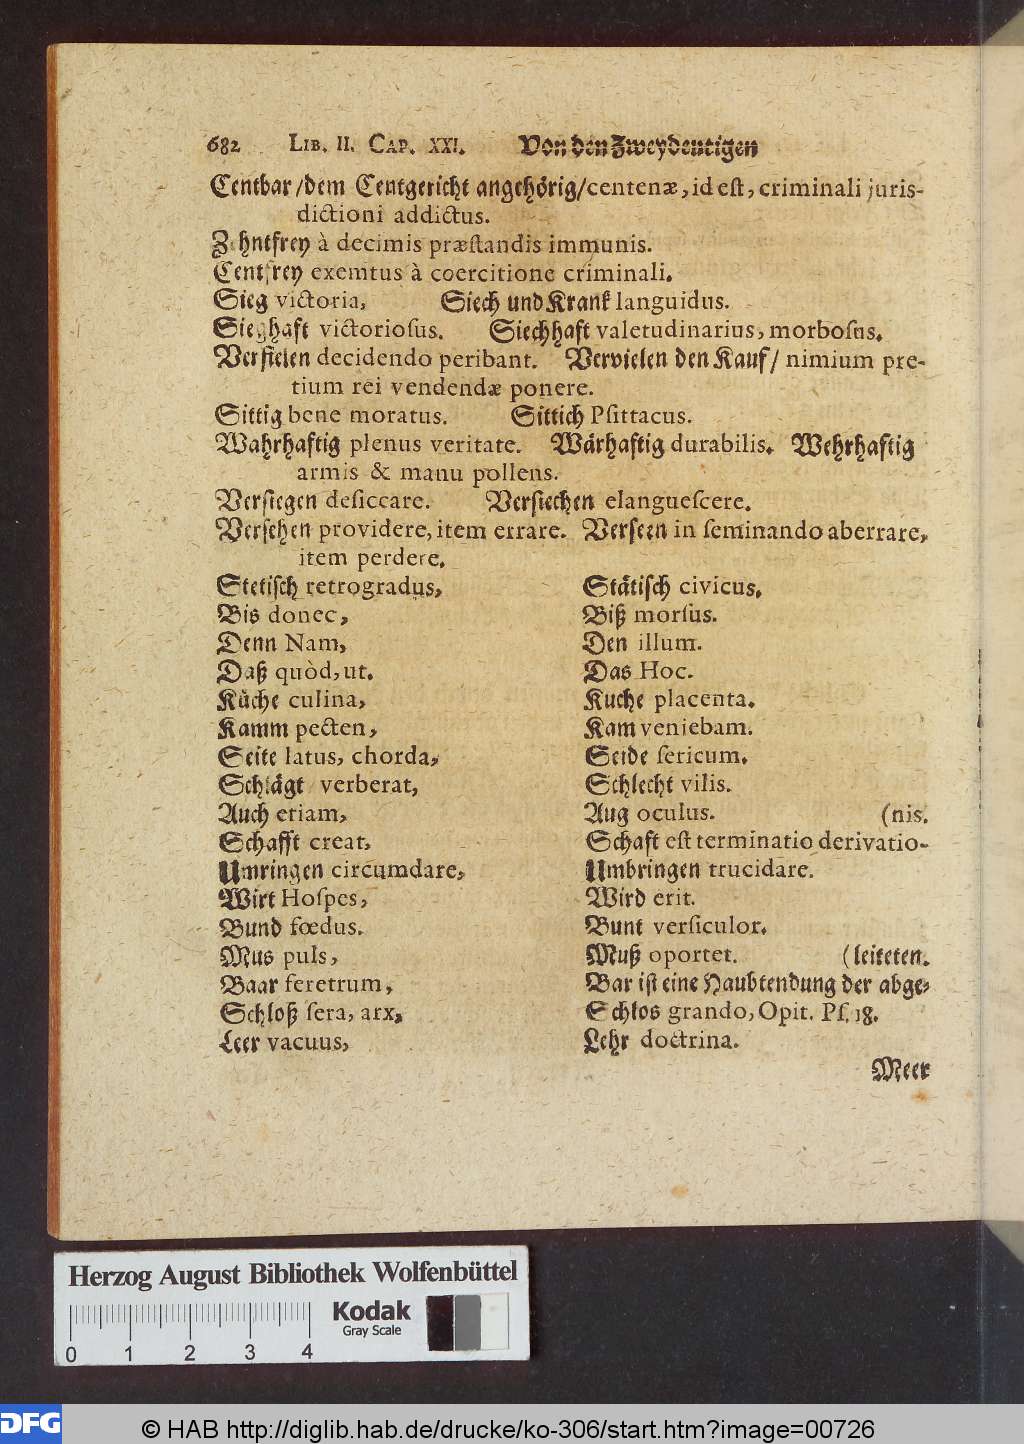 682 LIB. II. CAP. XXI. Von den Zweydeutigen
Centbar / dem Centgericht angehörig / centenæ, id eſt, criminali juris-
dictioni addictus.
Zehntfrey à decimis præſtandis immunis.
Centfrey exemtus à coercitione criminali.
Sieg victoria, Siech und Krank languidus.
Sieghaft victorioſus. Siechhaft valetudinarius, morboſus.
Verfielen decidendo peribant. Vervielen den Kauf / nimium pre-
tium rei vendendæ ponere.
Sittig bene moratus. Sittich Pſittacus.
Wahrhaftig plenus veritate. Wärhaftig durabilis. Wehrhaftig
armis & manu pollens.
Verſiegen deſiccare. Verſiechen elangueſcere.
Verſehen providere, item errare. Verſeen in ſeminando aberrare,
item perdere.
Stetiſch retrogradus, Stätiſch civicus.
Bis donec, Biß morſus.
Denn Nam, Den illum.
Daß quòd, ut. Das Hoc.
Küche culina, Kuche placenta.
Kamm pecten, Kam veniebam.
Seite latus, chorda, Seide ſericum.
Schlägt verberat, Schlecht vilis.
Auch etiam, Aug oculus. (nis.
Schafft creat, Schaft eſt terminatio derivatio-
Umringen circumdare, Umbringen trucidare.
Wirt Hoſpes, Wird erit.
Bund fœdus. Bunt verſiculor.
Mus puls, Muß oportet. (leiteten.
Baar feretrum, Bar iſt eine Haubtendung der abge-
Schloß ſera, arx, Schlos grando, Opit. Pſ. 18.
Leer vacuus, Lehr doctrina.
Meer
Herzog August Bibliothek Wolfenbüttel
Kodak
Gray Scale
0 1 2 3 4
DFG
© HAB http://diglib.hab.de/drucke/ko-306/start.htm?image=00726